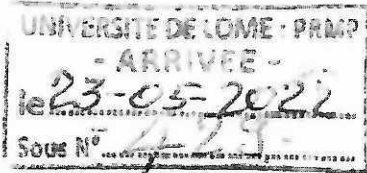 UNIVERSITE DE LOME - PRMP
- ARRIVEE -
le 23-05-2022
Sous N°